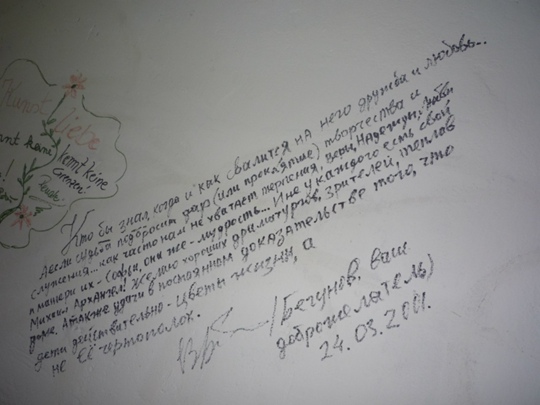 Kunst
liebe
kennt keine
Кто бы знал, когда и как свалится на него дружба и любовь...
А если судьба подбросит дар (или проклятие) творчества и
служения... как часто нам не хватает терпения, веры, надежды, любви
и матери их - Софии, она же - мудрость... Но у каждого есть свой
Михаил Архангел! Желаю хороших драматургов, зрителей, теплав
доме. А также удачи в постоянном доказательстве того, что
дети действительно - цветы жизни, а
не её чертополох.
/Бегунов, ваш
доброжелатель)
24.03.2001.